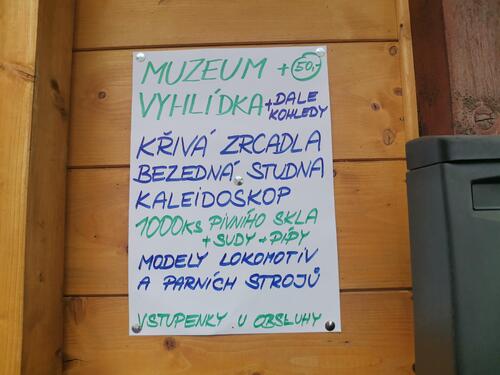 MUZEUM + 50,-
VYHLÍDKA + DALE
KOHLEDY
KŘIVÁ ZRCADLA
BEZEDNÁ STUDNA
KALEIDOSKOP
1000KS PIVNÍHO SKLA
+ SUDY + PÍPY
MODELY LOKOMOTIV
A PARNÍCH STROJŮ
VSTUPENKY U OBSLUHY